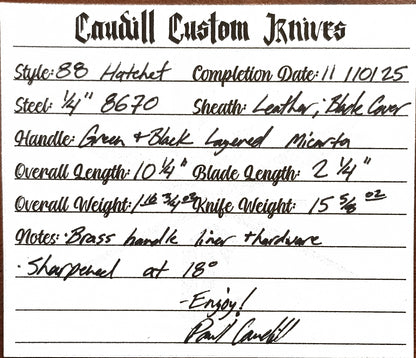 Caudill Custom Knives
Style: 88 Hatchet Completion Date: 11/10/25
Steel: 1/4" 8670 Sheath: Leather; Blade Cover
Handle: Green + Black Layered Micarta
Overall Length: 10 1/4" Blade Length: 2 1/4"
Overall Weight: 1 lb 3/4 oz Knife Weight: 15 5/8 oz
Notes: ·Brass handle liner + hardware
·Sharpened at 18°
-Enjoy!
Paul Caudill